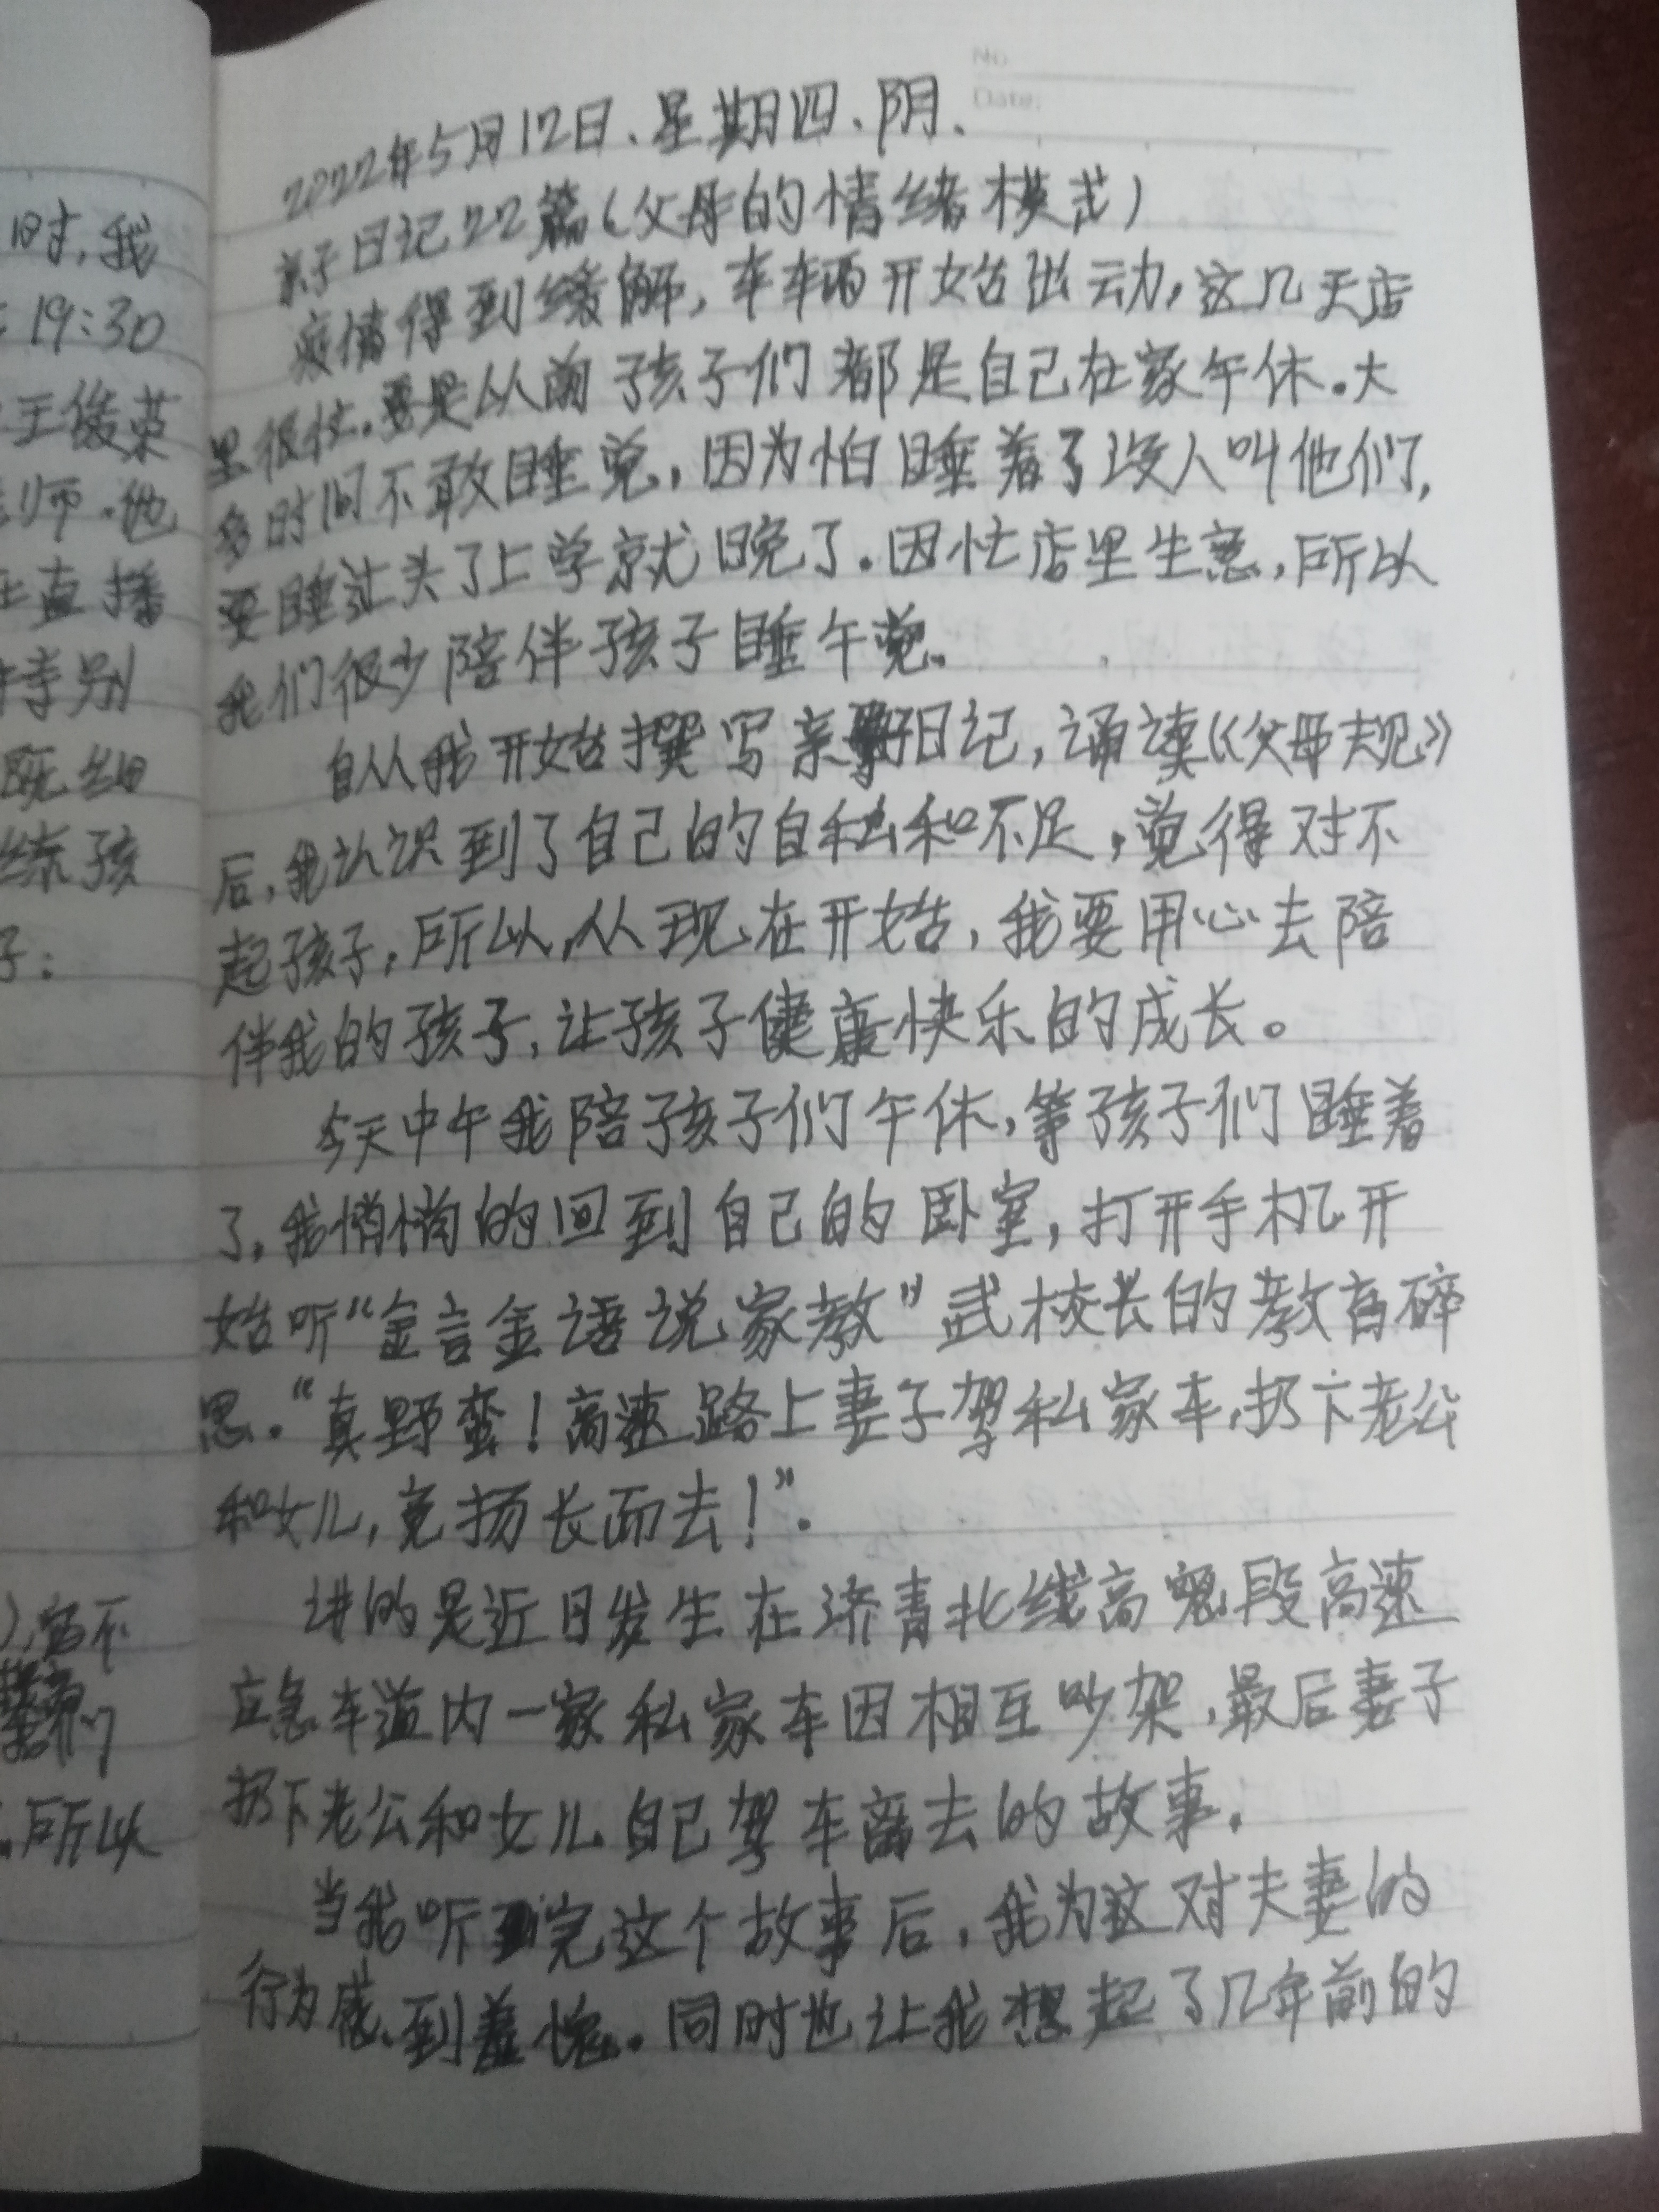 No
Date:
2022年5月12日、星期四、阴、
亲子日记22篇(父母的情绪模式)
疫情得到缓解,车车辆开始出动,这几天店
里很忙.要是从前孩子们都是自己在家午休。大
多时间不敢睡觉,因为怕睡着了没人叫他们,
要睡过头了上学就晚了.因忙店里生意,所以
我们很少陪伴孩子睡午觉.
自从我开始撰写亲子日记,诵读《父母规》
后,我认识到了自己的自私和不足,觉得对不
起孩子,所以,从现在开始,我要用心去陪
伴我的孩子,让孩子健康快乐的成长。
今天中午我陪孩子们午休,等孩子们睡着
了,我悄悄的回到自己的卧室,打开手机开
始听“金言金语说家教”武校长的教育碎
思.“真野蛮!高速路上妻子驾私家车,扔下老公
和女儿,竟扬长而去!”.
讲的是近日发生在济青北线高密段高速
应急车道内一家私家车因相互吵架,最后妻子
扔下老公和女儿自己驾车离去的故事.
当我听完这个故事后,我为这对夫妻的
行为感到羞愧.同时也让我想起了几年前的
时,我
19:30
王俊荣
师.他
直播
特别
练孩
子:
所以